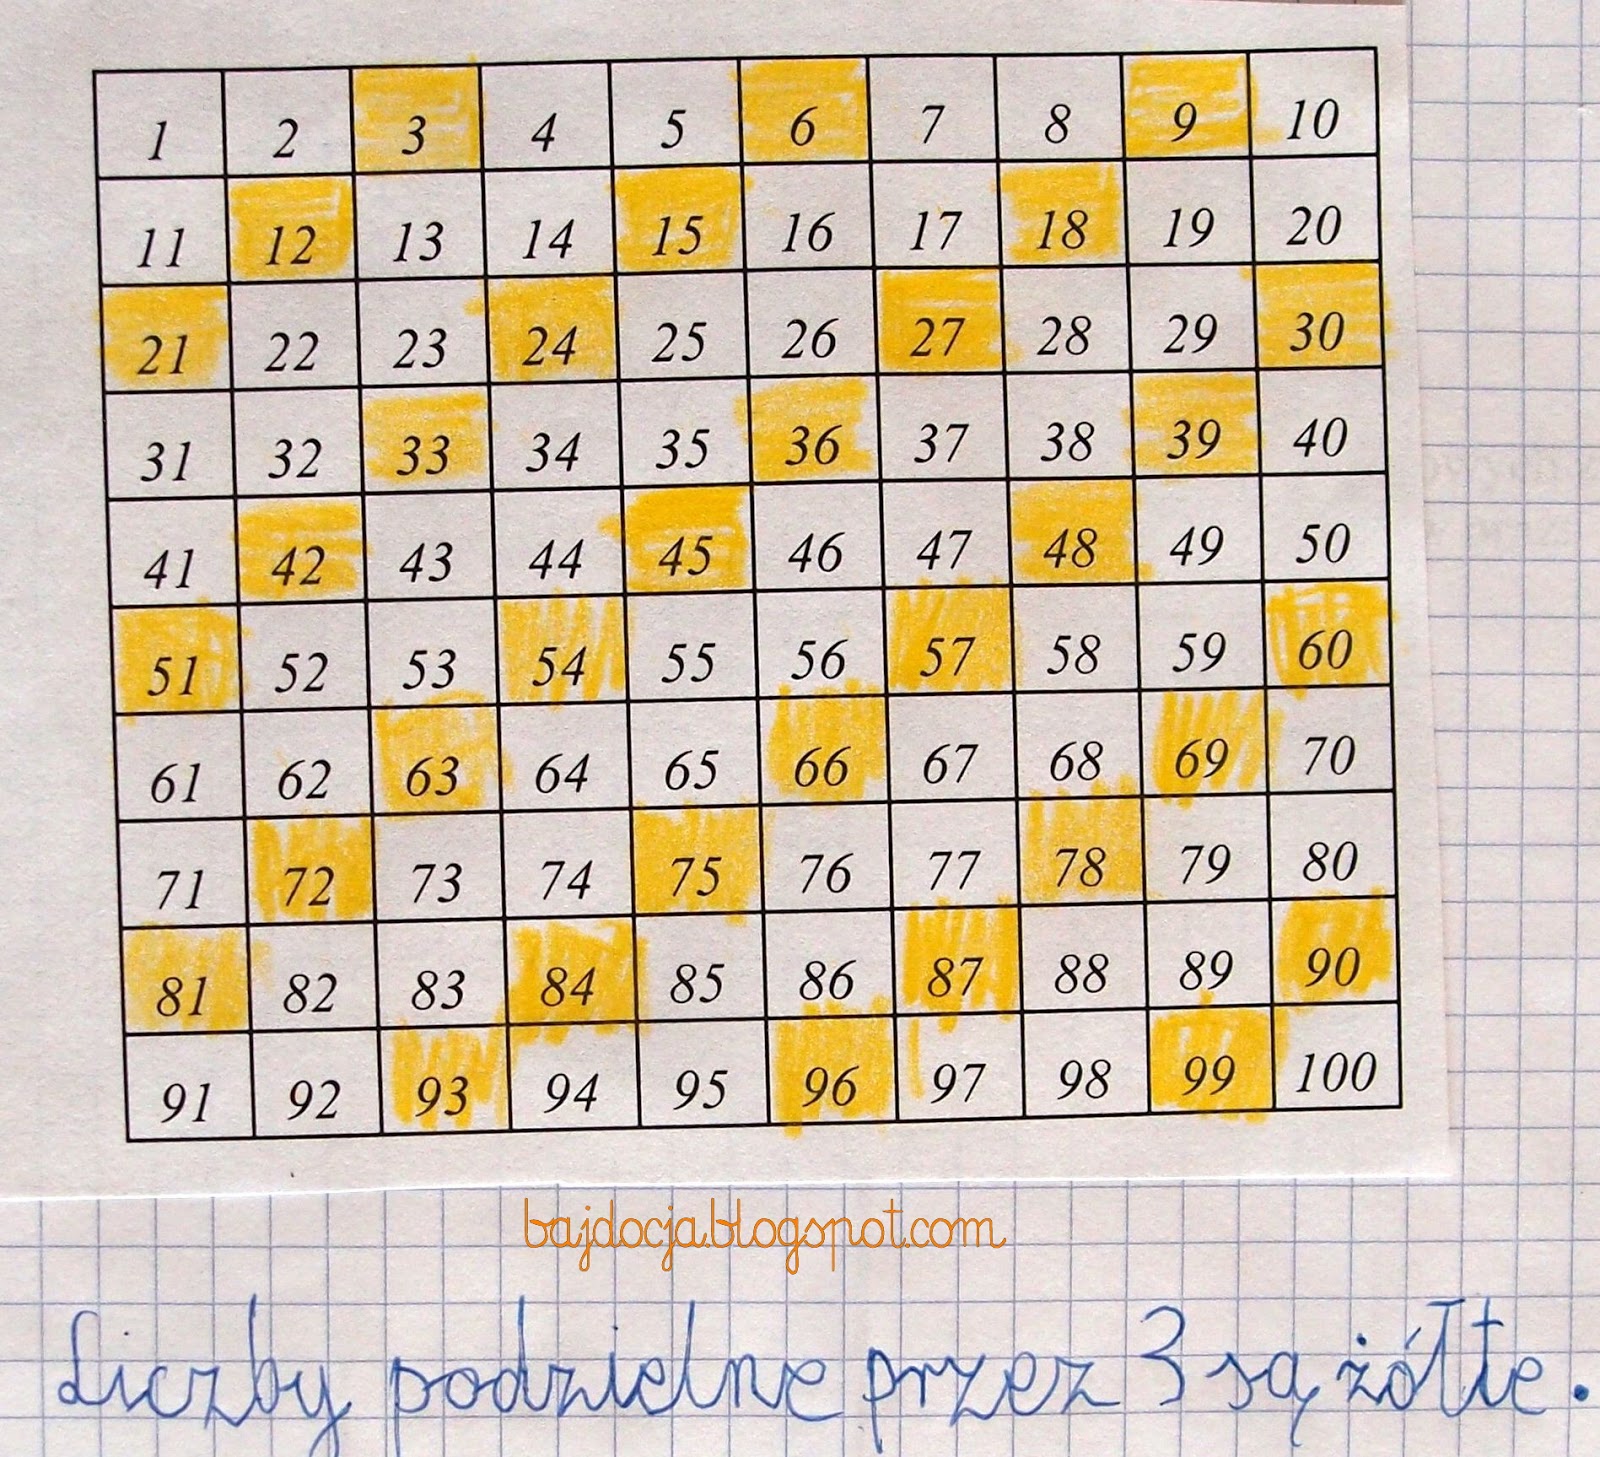 1 2 3 4 5 6 7 8 9 10
11 12 13 14 15 16 17 18 19 20
21 22 23 24 25 26 27 28 29 30
31 32 33 34 35 36 37 38 39 40
41 42 43 44 45 46 47 48 49 50
51 52 53 54 55 56 57 58 59 60
61 62 63 64 65 66 67 68 69 70
71 72 73 74 75 76 77 78 79 80
81 82 83 84 85 86 87 88 89 90
91 92 93 94 95 96 97 98 99 100
bajdocja.blogspot.com
Liczby podzielne przez 3 są żółte.